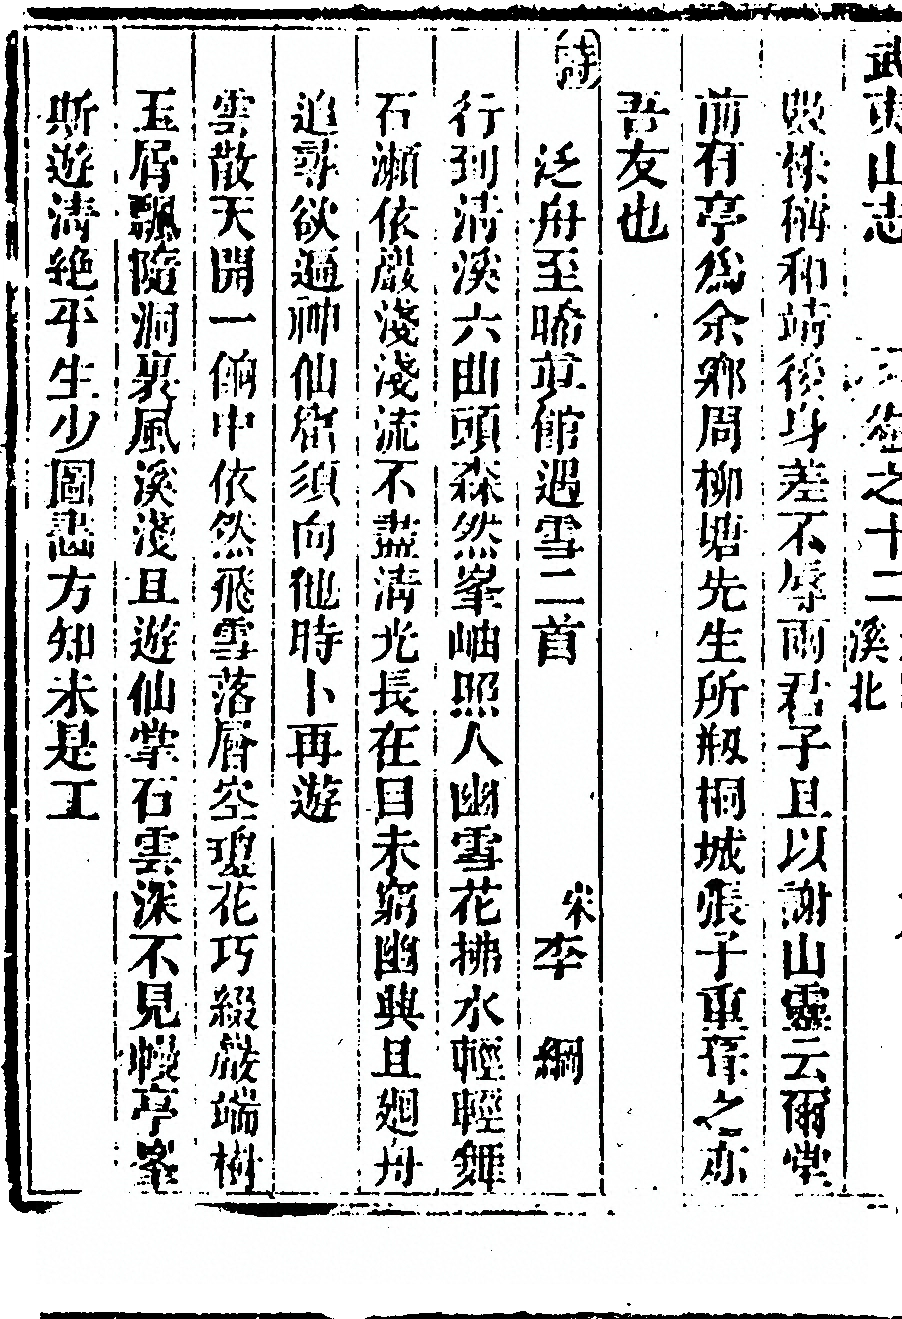 武夷山志 卷之十二 溪北
毀株稱和靖後身差不辱兩君子且以謝山靈云爾堂
前有亭爲余鄉周柳塘先生所剏桐城張子重葺之亦
吾友也
詩
泛舟至晞真館遇雪二首 宋李 綱
行到清溪六曲頭森然峯岫照人幽雪花拂水輕輕舞
石瀨依巖淺淺流不盡清光長在目未窮幽興且廻舟
追尋欲遍神仙窟須向他時卜再遊
雲散天開一餉中依然飛雪落層空瓊花巧綴巖端樹
玉屑飄隨洞裏風溪淺且遊仙掌石雲深不見幔亭峯
斯遊清絶平生少圖畵方知未是工